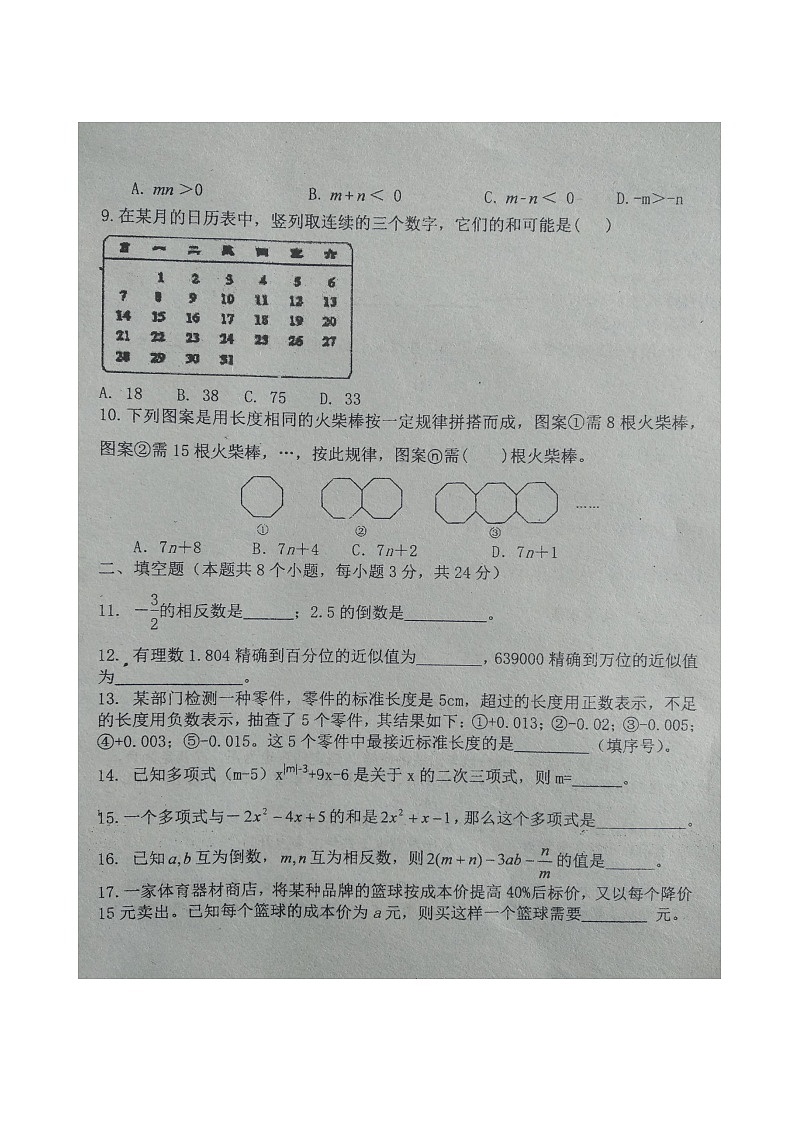 A. mn >0 B. m+n< 0 C. m-n< 0 D.-m>-n
9.在某月的日历表中，竖列取连续的三个数字，它们的和可能是( )
一 二 四 五 六
1 2 3 4 5 6
7 8 9 10 11 12 13
14 15 16 17 18 19 20
21 22 23 24 25 26 27
28 29 30 31
A. 18 B. 38 C. 75 D. 33
10.下列图案是用长度相同的火柴棒按一定规律拼搭而成，图案①需8根火柴棒，
图案②需15根火柴棒，…，按此规律，图案ⓝ需( )根火柴棒。
……
① ② ③
A. 7n+8 B. 7n+4 C. 7n+2 D. 7n+1
二、填空题（本题共8个小题，每小题3分，共24分）
11. -3/2的相反数是______；2.5的倒数是__________。
12. 有理数1.804精确到百分位的近似值为________，639000精确到万位的近似值
为________________。
13. 某部门检测一种零件，零件的标准长度是5cm，超过的长度用正数表示，不足
的长度用负数表示，抽查了5个零件，其结果如下：①+0.013；②-0.02；③-0.005；
④+0.003；⑤-0.015。这5个零件中最接近标准长度的是_________（填序号）。
14. 已知多项式（m-5）x^|m|-3+9x-6是关于x的二次三项式，则m=______。
15.一个多项式与-2x²-4x+5的和是2x²+x-1，那么这个多项式是___________。
16. 已知a,b互为倒数，m,n互为相反数，则2(m+n)-3ab-n/m的值是______。
17.一家体育器材商店，将某种品牌的篮球按成本价提高40%后标价，又以每个降价
15元卖出。已知每个篮球的成本价为a元，则买这样一个篮球需要________ 元。